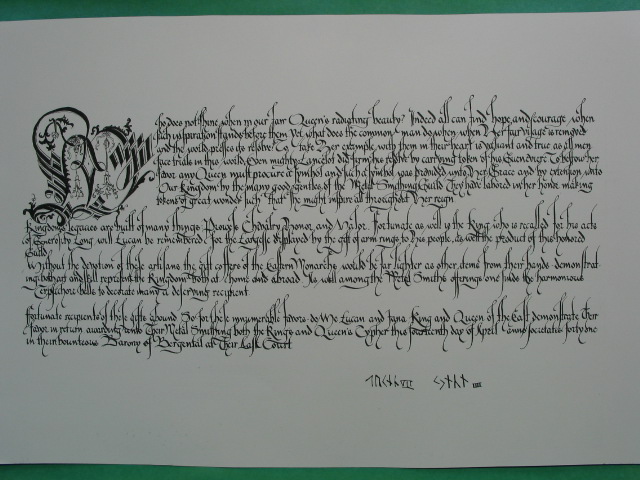 Who does not shine when in our fair Queen's radiating beauty? Indeed all can find hope and courage when
such inspiration stands before them Yet what does the common man do when Her fair visage is removed
and the world presses its resolve? To take Her example with them in their heart is valiant and true as all men
face trials in this world. Even mighty Lancelot did firm his resolve by carrying token of his Guenevere To bestow her
favor any Queen must procure a symbol and such a symbol was provided unto Her Grace and by extension unto
Our Kingdom by the many good gentles of the Metal Smiths Guild They have labored in her honor making
tokens of great wonder such that She might inspire all throughout Her reign
Kingdoms legacies are built of many things Prowess Chivalry Honor and Valor. Fortunate as well is the King who is recalled for his acts
of Generosity Long will Lucan be remembered for the Largesse displayed by the gift of arm rings to his people, as well the product of this honored
Guild
Without the devotion of these artisans the gift coffers of the Eastern Monarchs would be far lighter as other items from their hands demonstrat
ing their art and skill represent the Kingdom both at home and abroad As well among the Metal Smiths offerings one finds the harmonious
Terpsichore bells to decorate many a deserving recipient
Fortunate recipients of these gifts abound So for these innumerable favors do We Lucan and Jana King and Queen of the East demonstrate Their
favor in return awarding unto Their Metal Smithing both the King's and Queen's Cypher this fourteenth day of April anno societatis forty one
in their bounteous Barony of Bergental at Their Last Court